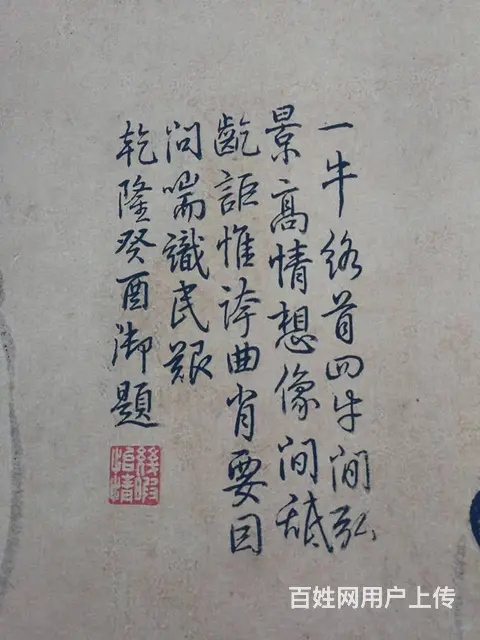 一牛絡首四牛閒弘
景高情想像間舐
齕詎惟誇曲肖要因
問喘識民艱
乾隆癸酉御題
百姓网用户上传